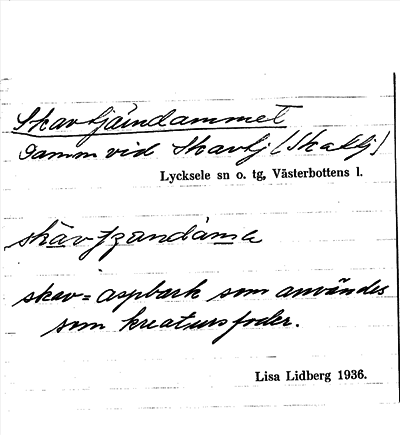 Skavtjäindammet
Damm vid Skavtj (Skattj)
Lycksele sn o. tg, Västerbottens l.
skav = aspbark som användes
som kreatursfoder.
Lisa Lidberg 1936.